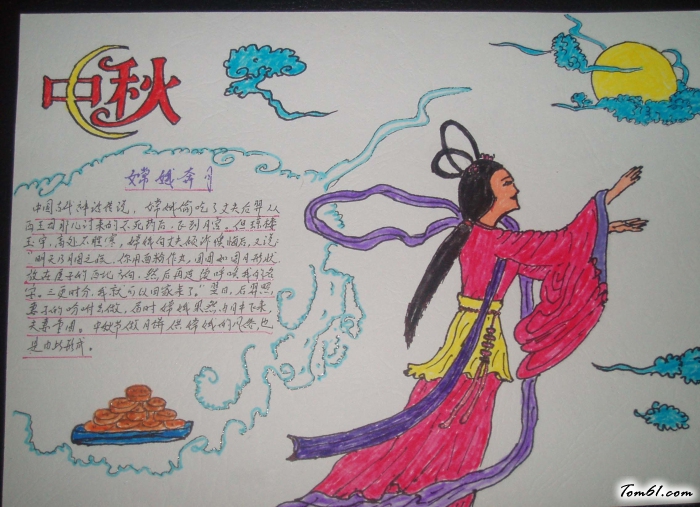 中秋
嫦娥奔月
中国古代神话传说,嫦娥偷吃了丈夫后羿从
西王母那儿讨来的不死药后,飞到月宫。但琼楼
玉宇,高处不胜寒,嫦娥向丈夫倾诉懊悔后,又说:
"明天乃月圆之候,你用面粉作丸,团团如圆月形状,
放在屋子的西北方向,然后再连续呼唤我的名
字。三更时分,我就可以回家来了。"翌日,后羿照
妻子的吩咐去做,届时嫦娥果然与月中飞来,
夫妻重圆。中秋节做月饼供嫦娥的风俗也
是由此形成。
Tom61.com